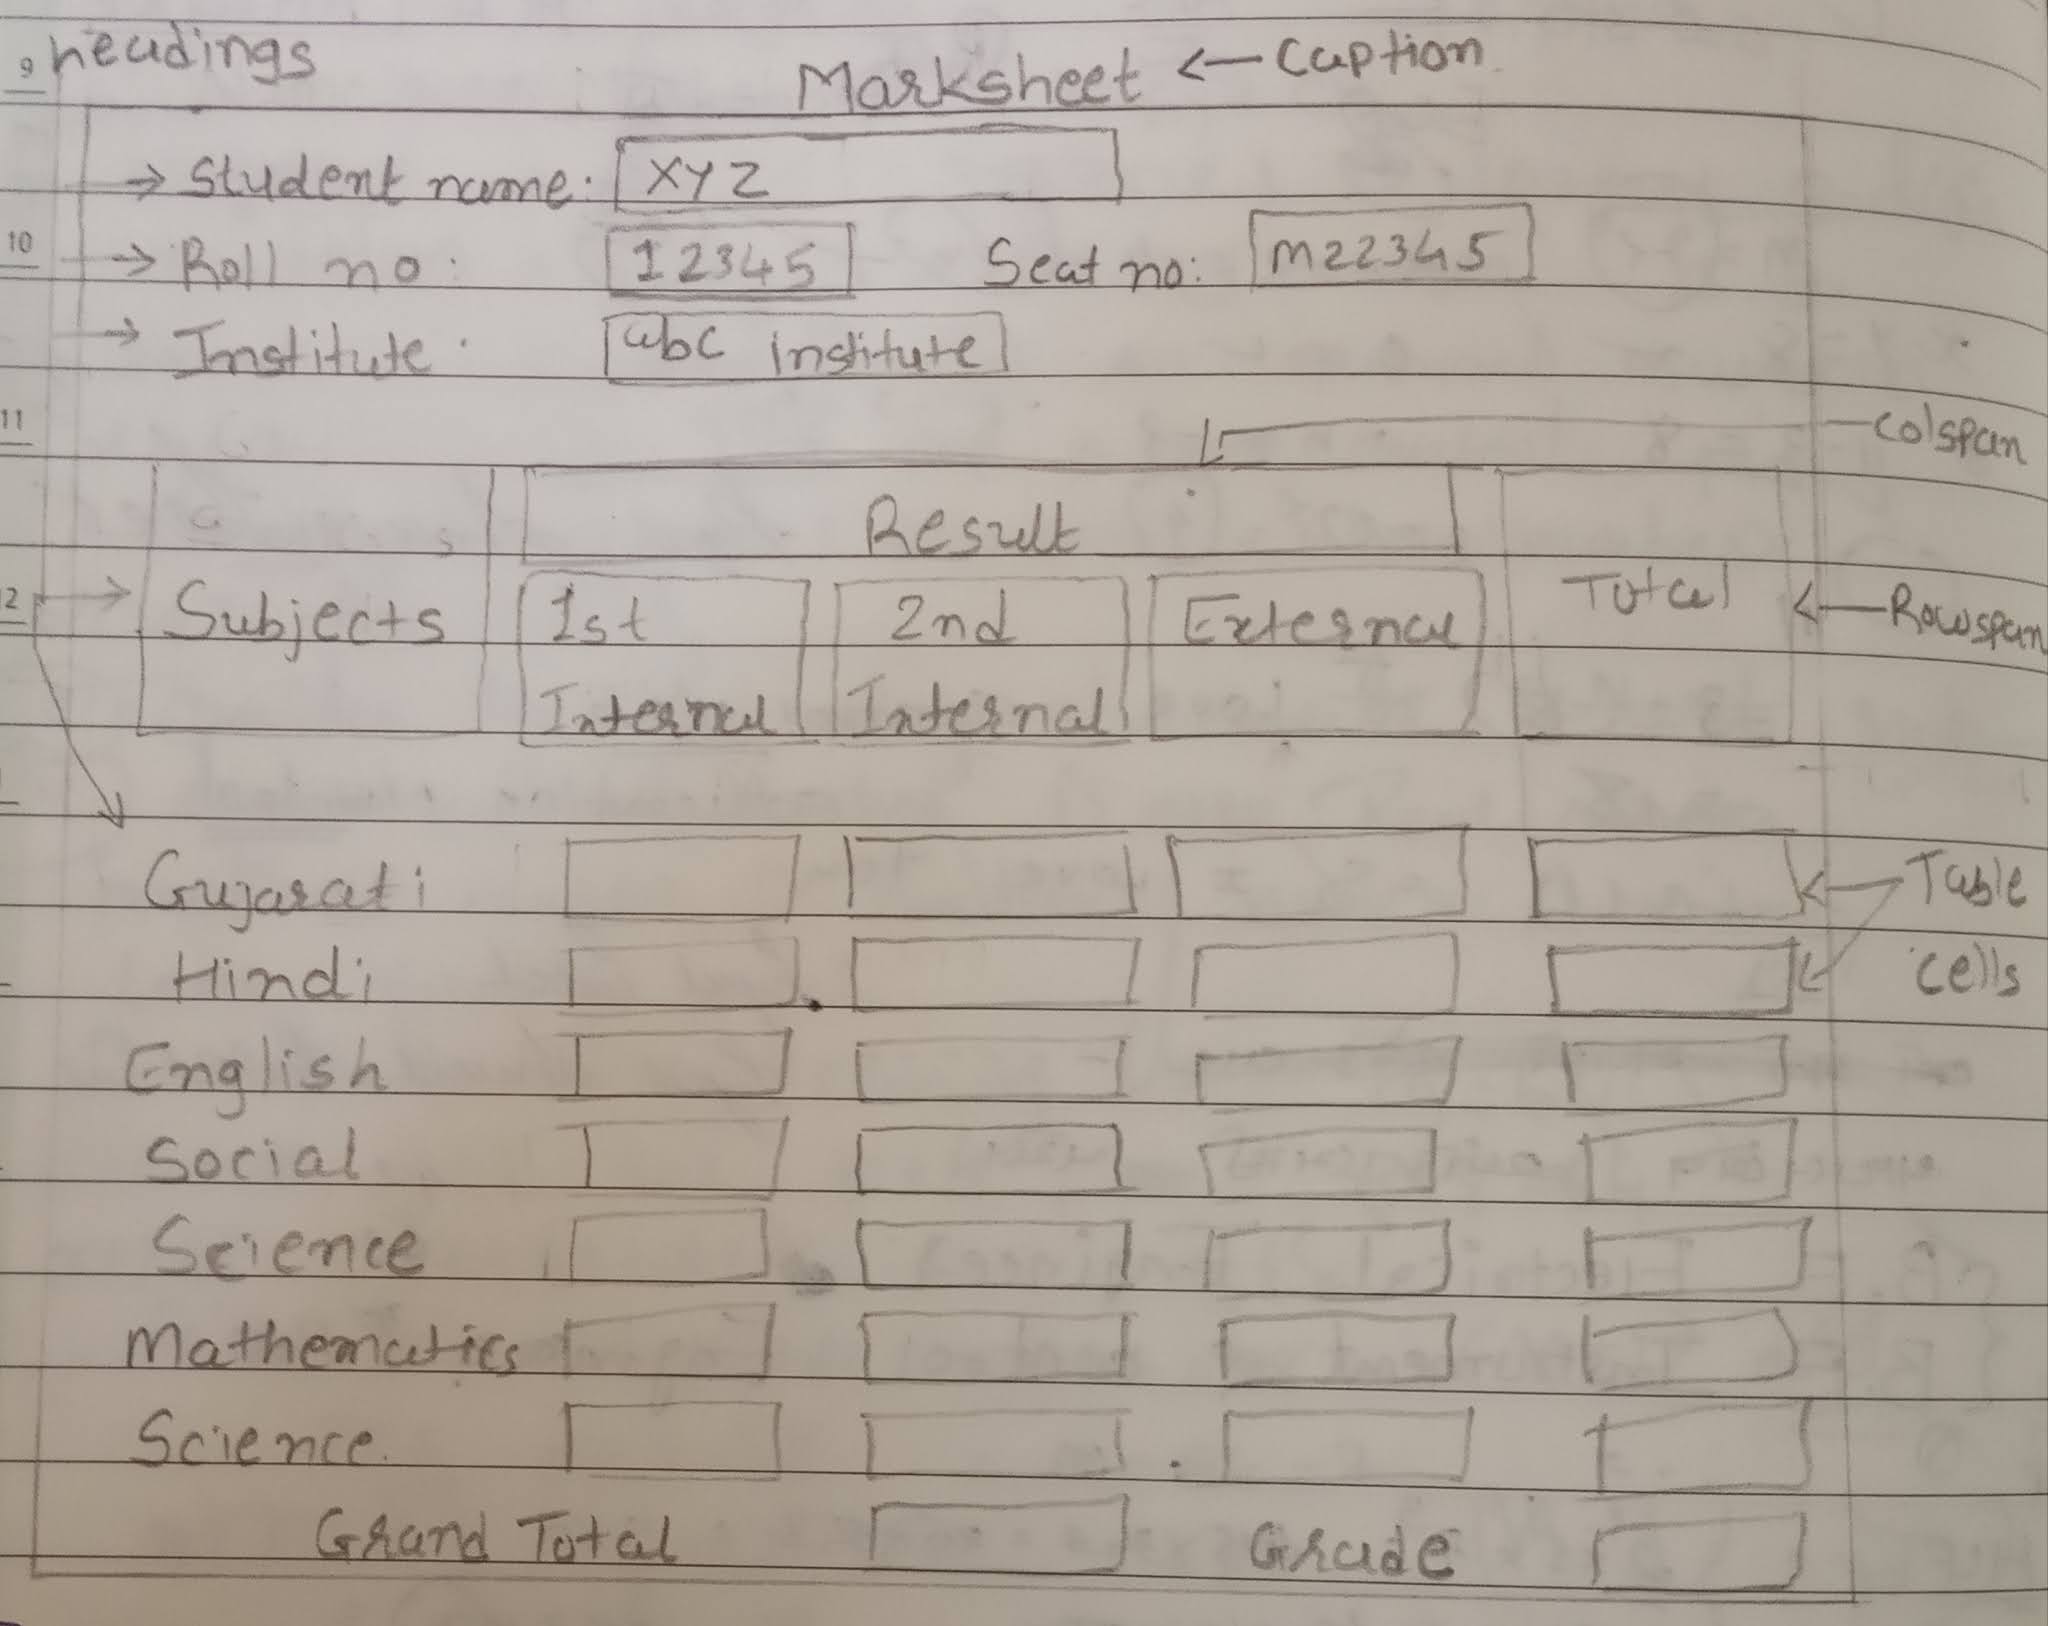 9 headings
Marksheet ← Caption
→ Student name: XYZ
10 → Roll no: 12345 Seat no: M22345
→ Institute. abc institute
11 Colspan
Result
12 → Subjects 1st Internal 2nd Internal External Total ← Rowspan
Gujarati Table
Hindi cells
English
Social
Science
Mathematics
Science.
Grand Total Grade